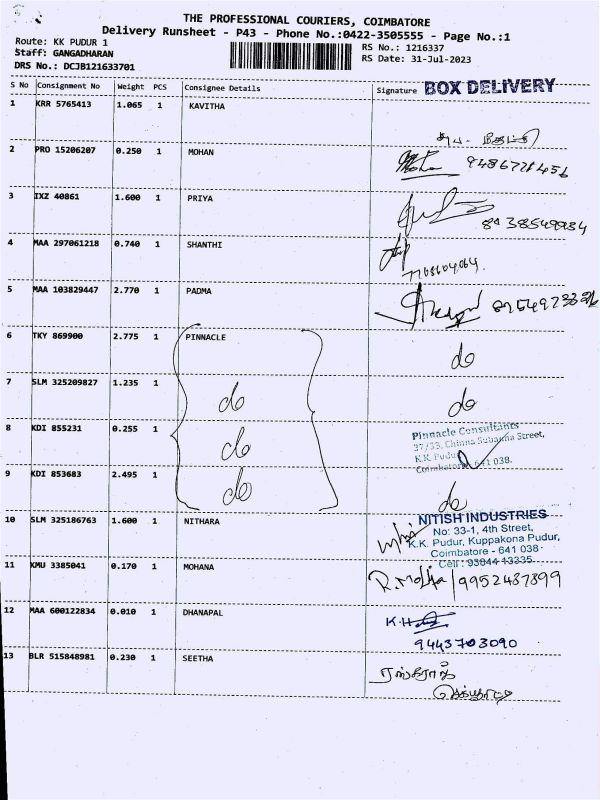 THE PROFESSIONAL COURIERS, COIMBATORE
Delivery Runsheet - P43 - Phone No.:0422-3505555 - Page No.:1
Route: KK PUDUR 1
Staff: GANGADHARAN
DRS No.: DCJB121633701
RS No.: 1216337
RS Date: 31-Jul-2023
S No Consignment No Weight PCS Consignee Details Signature BOX DELIVERY
1 KRR 5765413 1.065 1 KAVITHA
2 PRO 15206207 0.250 1 MOHAN 9486721456
3 IXZ 40861 1.600 1 PRIYA
4 MAA 297061218 0.740 1 SHANTHI
5 MAA 103829447 2.770 1 PADMA
6 TKY 869900 2.775 1 PINNACLE do
7 SLM 325209827 1.235 1 do do
8 KDI 855231 0.255 1 do Pinnacle Consultants
37/33, Chinna Subanna Street,
K.K. Pudur
Coimbatore 641 038.
9 KDI 853683 2.495 1 do do
10 SLM 325186763 1.600 1 NITHARA NITISH INDUSTRIES
No: 33-1, 4th Street,
K.K. Pudur, Kuppakona Pudur,
Coimbatore - 641 038
Cell : 93844 13335
11 KMU 3385041 0.170 1 MOHANA 9952487899
12 MAA 600122834 0.010 1 DHANAPAL
9443703090
13 BLR 515848981 0.230 1 SEETHA